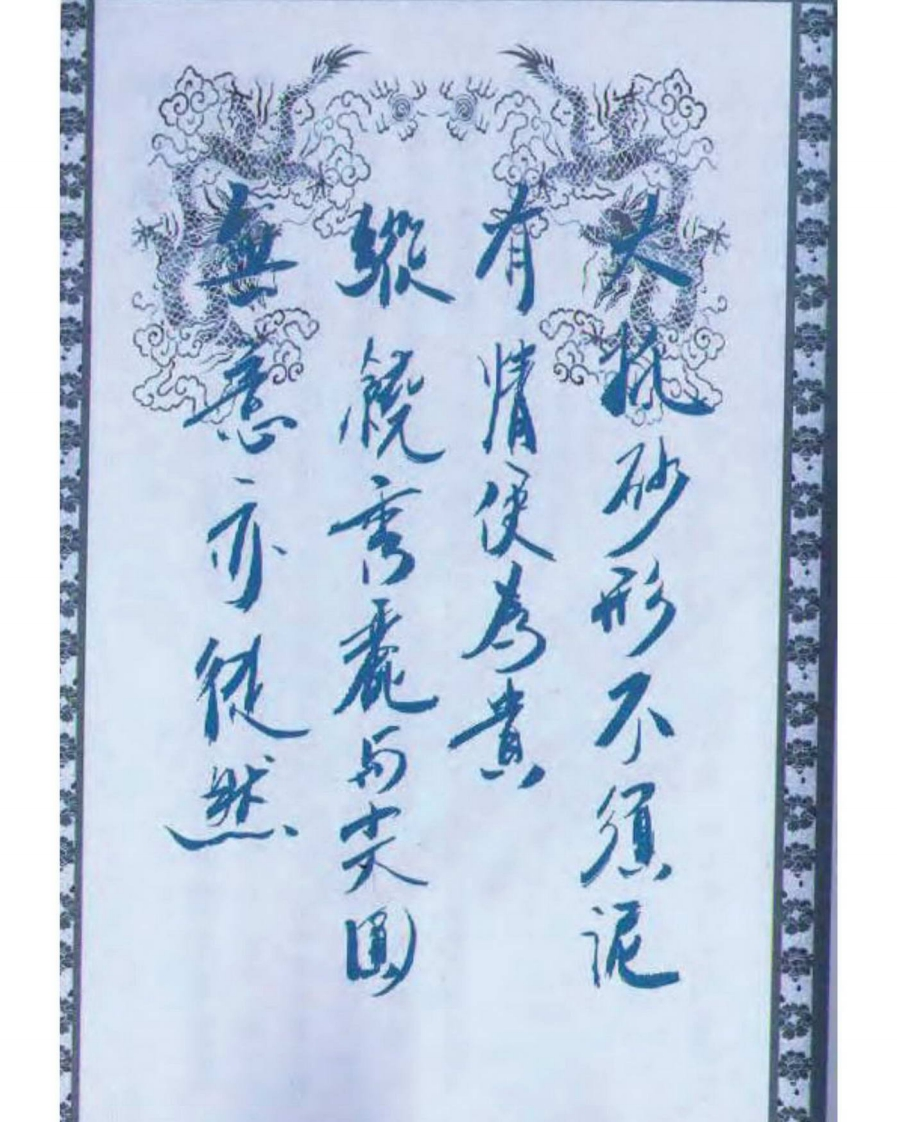 大抵砂形不須泥
有情便為貴
縱饒秀麗与尖圓
無意亦徒然